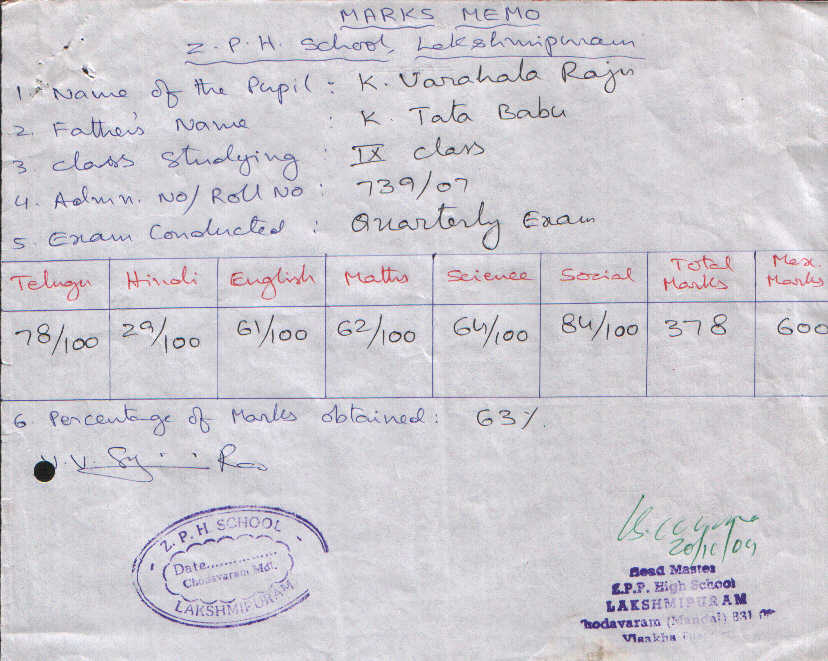 MARKS MEMO
Z.P.H. School, Lakshmipuram
1. Name of the Pupil : K. Varahala Raju
2. Father's Name : K Tata Babu
3. Class Studying : IX class
4. Admn. No/Roll No : 739/07
5. Exam Conducted : Quarterly Exam
Telugu Hindi English Maths Science Social Total Marks Max. Marks
78/100 29/100 61/100 62/100 64/100 84/100 378 600
6. Percentage of Marks obtained: 63%.
V. Rao
Z.P.H SCHOOL
Date..............
Chodavaram Mdl.
LAKSHMIPURAM
20/10/09
Head Master
Z.P.P. High School
LAKSHMIPURAM
hodavaram (Mandal) 531
Visakha